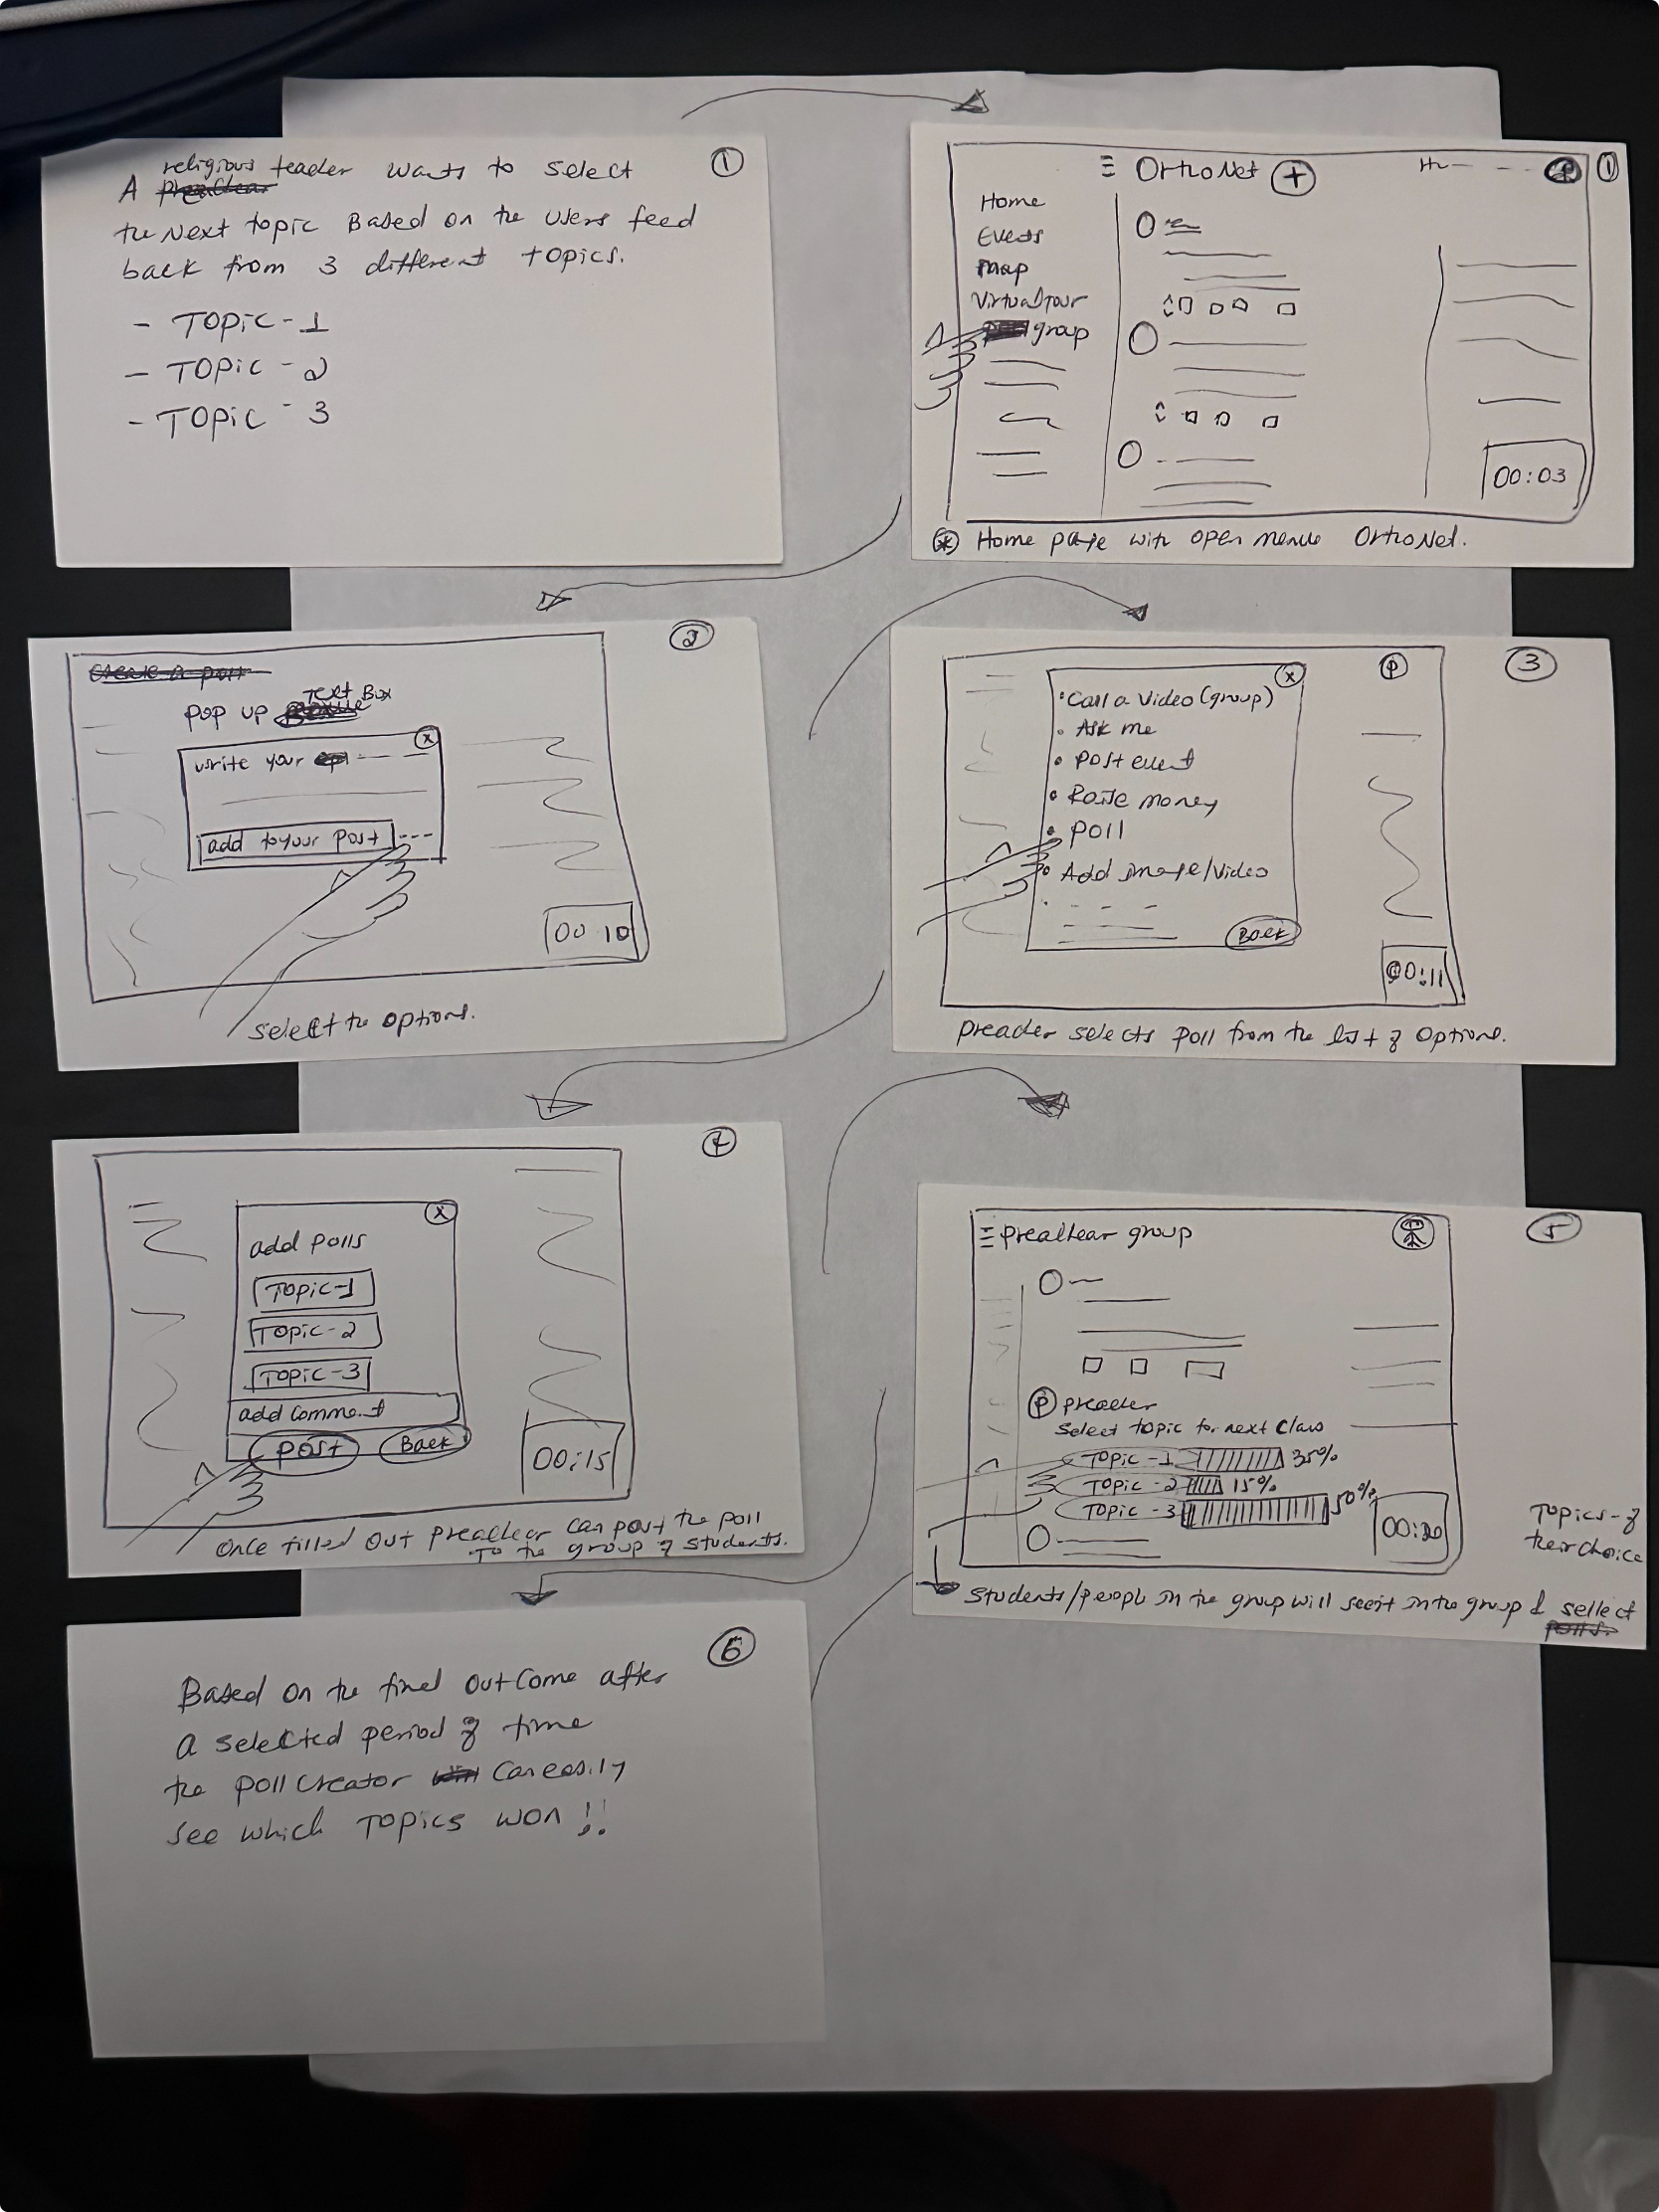 ①
religious leader wants to select
A
the Next topic Based on the users feed
back from 3 different topics.
- Topic-1
- Topic-2
- Topic-3
①
OrthoNet +
Home
Events
Map
Virtual tour
group
00:03
Home page with open menue OrthoNet.
②
Create a poll
Text Box
Pop up
X
write your
add to your post
00 10
select the options.
③
X
P
Call a Video (group)
Ask me
Post event
Raise money
Poll
Add image/Video
Back
00:11
preader selects poll from the list of options.
④
X
add polls
Topic-1
Topic-2
Topic-3
add comment
post Back
00:15
Once filled out preachear can post the poll
to the group of students.
⑤
preachear group
P preader
Select topic for next Class
Topic-1 35%
Topic-2 15%
Topic-3 50%
00:20
Topics-of
their choice
Students/people in the group will see it in the group & sellect
polls.
⑥
Based on the final outcome after
a selected period of time
the poll creator can easily
see which Topics won !!